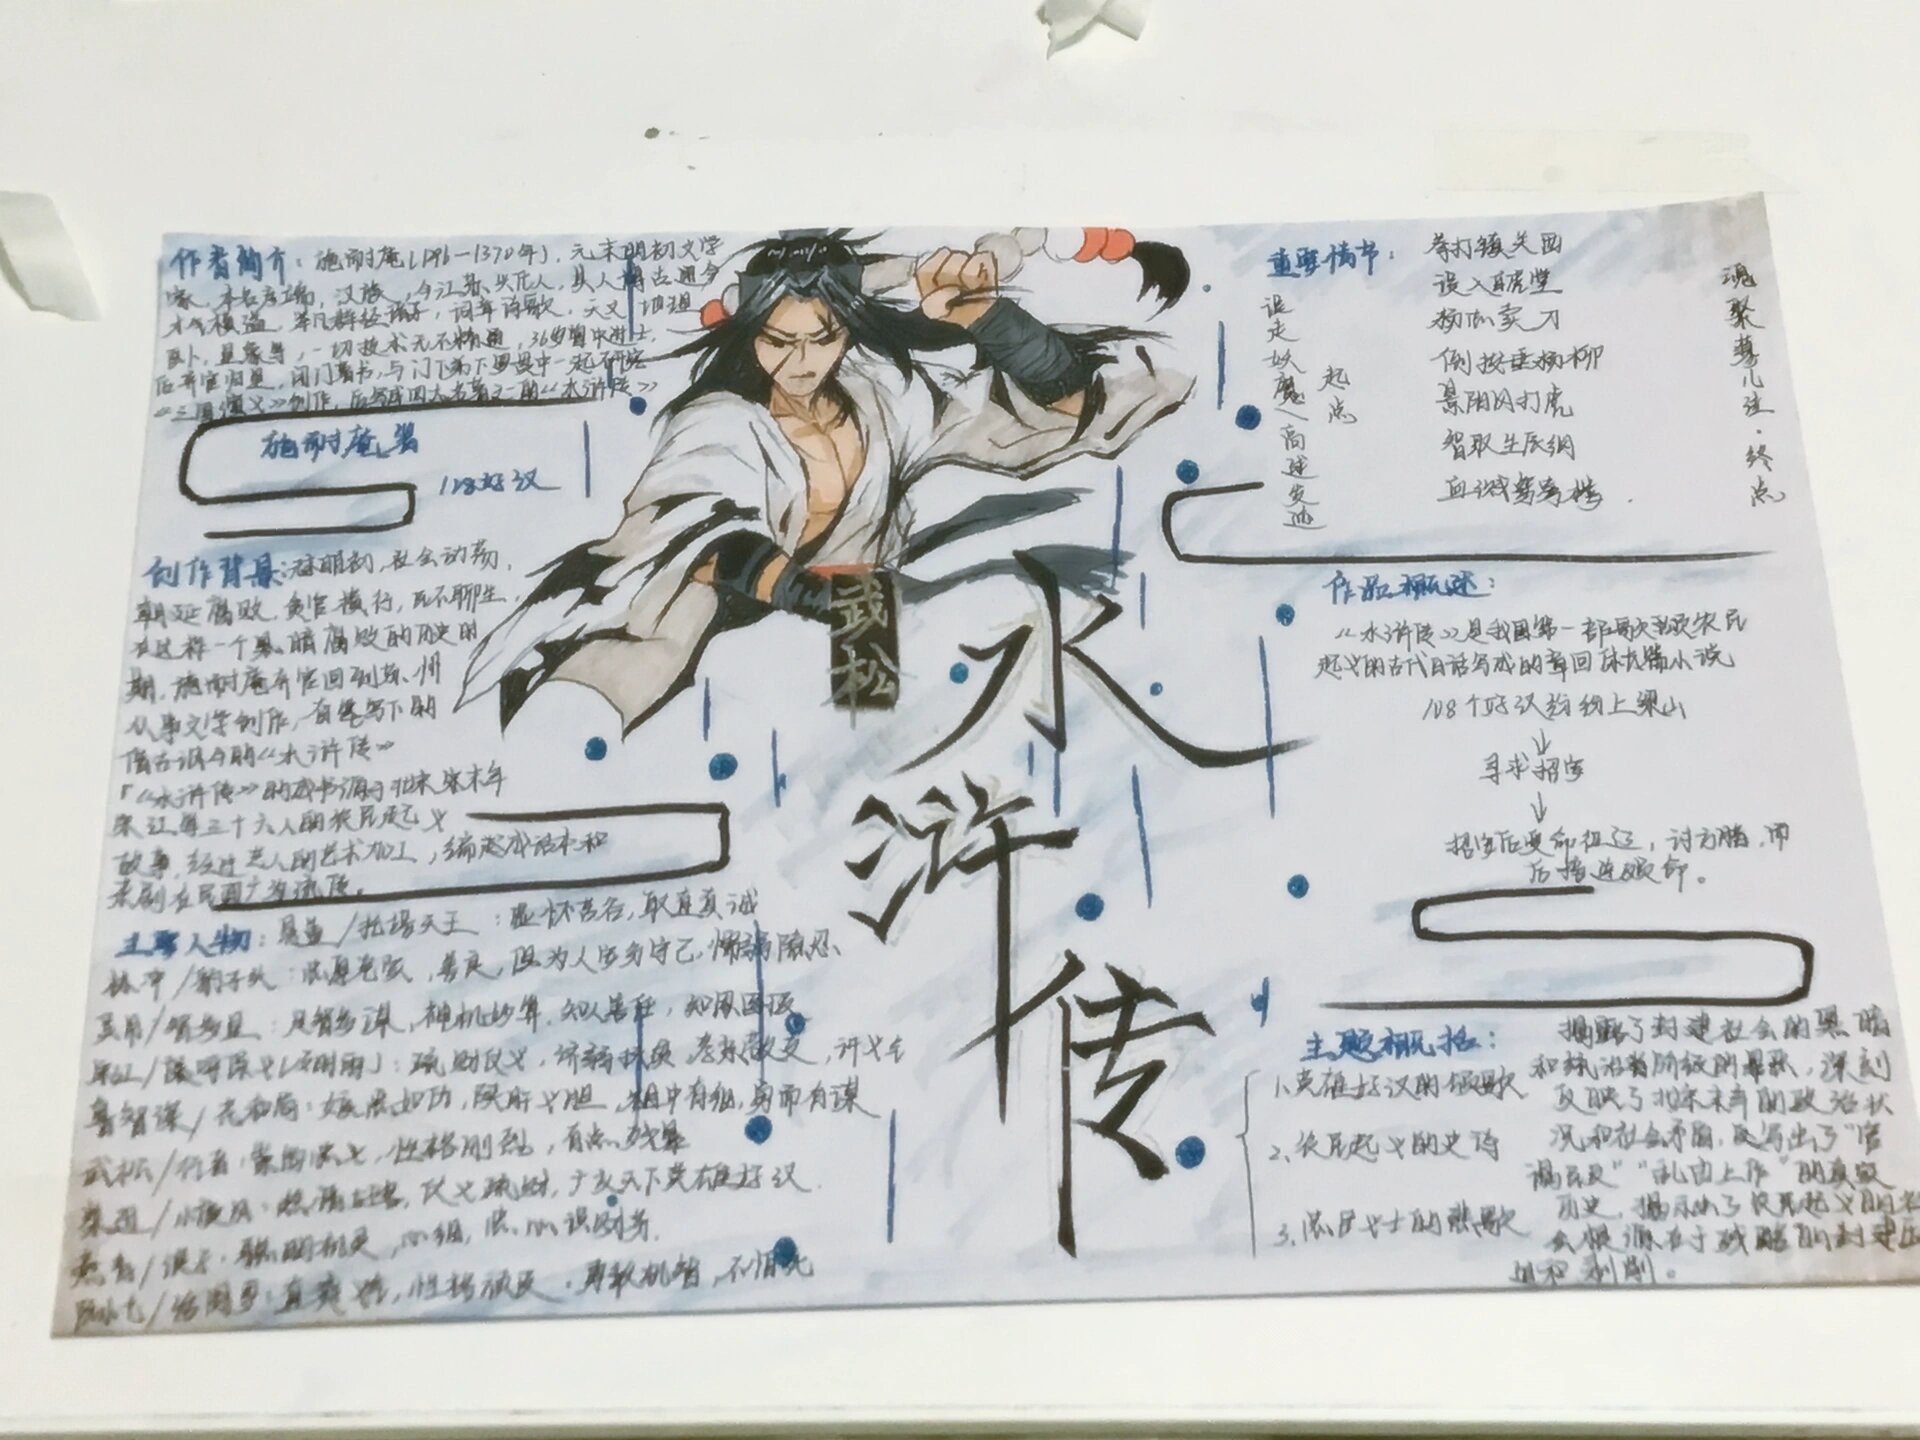 作者简介：施耐庵(1296—1370年)，元末明初文学
家，本名彦端，汉族，今江苏兴化人，其人博古通今
才气横溢，举凡群经诸子，词章诗歌，天文、地理
医卜、星象等，一切技术无不精通，36岁曾中进士，
后弃官归里，闭门著书，与门下弟下罗贯中一起研究
《三国演义》创作，后写四大名著之一的《水浒传》
施耐庵著
108好汉
创作背景：元末明初，社会动荡，
朝廷腐败，贪官横行，民不聊生，
在这样一个黑暗腐败的历史时
期，施耐庵弃官回到苏州
从事文学创作，
《水浒传》
《水浒传》的成书源于北宋宋末年
宋江等三十六人的农民起义
故事，经过艺人的艺术加工，编成话本和
杂剧在民间广为流传。
主要人物：晁盖/托塔天王：虚怀若谷，取直真诚
林冲/豹子头：，善良，因为人安分守己，懦弱隐忍
吴用/智多星：足智多谋，神机妙算，知人善任，知恩图报
宋江/及时雨：疏财仗义，济弱扶
鲁智深/花和尚：嫉恶如仇，侠肝义胆，粗中有细，勇而有谋
武松/行者：崇尚忠义，性格刚烈，有点残暴
柴进/小旋风：，仗义疏财，天下英雄好汉
燕青/浪子：聪明机灵，心细，
阮小七/活阎罗：直爽，性格，勇敢机智，不怕死
武松
水浒传
重要情节：
误走妖魔
高逑发迹
起点
拳打镇关西
误入白虎堂
杨志卖刀
倒拔垂杨柳
景阳冈打虎
智取生辰纲
血溅鸳鸯楼
魂聚蓼儿洼·终点
作品概述：
《水浒传》是我国第一部歌颂农民
起义的古代白话写成的章回体长篇小说
108个好汉纷纷上梁山
↓
寻求招安
↓
招安后受命征辽，讨方腊，而
后接连殒命。
主题概括：
1、英雄好汉的颂歌
2、农民起义的史诗
3、忠臣义士的悲歌
揭露了封建社会的黑暗
和统治者阶级的罪恶，深刻
反映了北宋末年的政治状
况和社会矛盾，反写出了“官
逼民反”“乱由上作”的真实
历史，揭示出了农民起义的社
会根源在于残酷的封建压
迫和剥削。